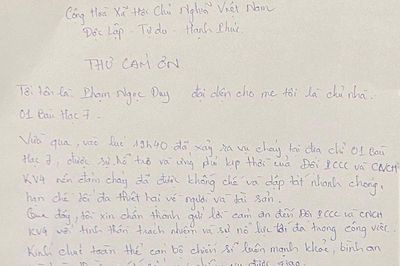 Cộng Hoà Xã Hội Chủ Nghĩa Việt Nam
Độc Lập - Tự do - Hạnh Phúc
THƯ CẢM ƠN
Tôi tên là Phạm Ngọc Duy đại diện cho mẹ tôi là chủ nhà
01 Bàu Hạc 7.
Vừa qua, vào lúc 19h40 đã xảy ra vụ cháy tại địa chỉ 01 Bàu
Hạc 7, được sự hỗ trợ và ứng phó kịp thời của Đội PCCC và CNCH
KV4 nên đám cháy đã được khống chế và dập tắt nhanh chóng,
hạn chế tối đa thiệt hại về người và tài sản.
Qua đây, tôi xin chân thành gửi lời cảm ơn đến Đội PCCC và CNCH
KV4 với tinh thần trách nhiệm và sự nỗ lực tối đa trong công việc.
Kính chúc toàn thể cán bộ chiến sĩ luôn mạnh khoẻ, bình an